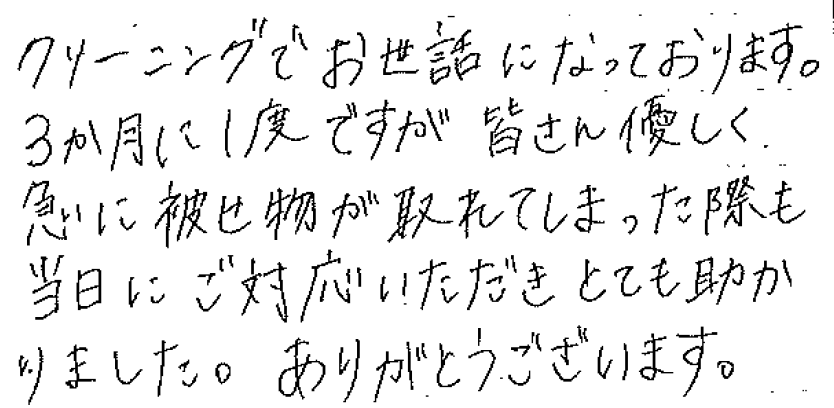 クリーニングでお世話になっております。
3か月に1度ですが 皆さん優しく
急に被せ物が取れてしまった際も
当日にご対応いただきとても助か
りました。ありがとうございます。